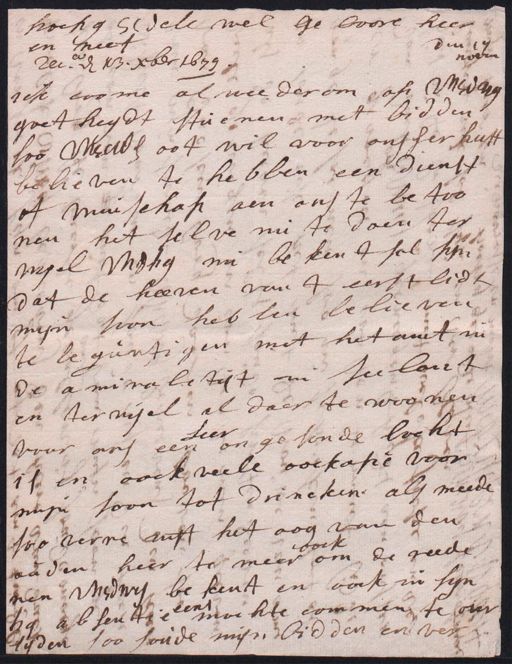 hoohg Edele wel ge boore heer
en neef
den 17
novem
Rec. d 13. xber 1679
ick coome al wederom op
goetheydt stuenen met bidden
soo oot wil voor ons
believen te hebben een dienst
of aen ons te be too
nen het selve mi te doen ter
wyel mi be kent sal syn
dat de heeren van t eerst lidt
mijn soon hebben believen
te begunstigen met het amt in
de amiraletijt in seelant
en terwijel al daer te woonen
voor ons een seer on ge sonde locht
is en oock veele ockasie voor
mijn soon tot drincken als meede
soo verre uijt het oog van den
ouden heer te meer oock om de reede
nen be kent en oock in syn
absentie eens mochte commen te over
lijden soo soude mijn bidden en ver